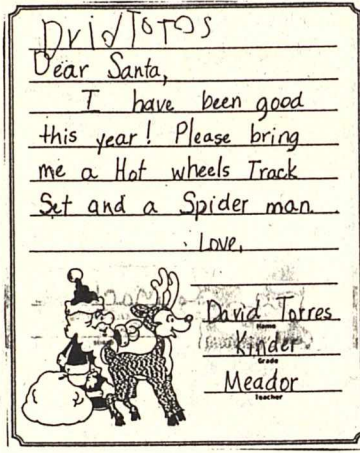 DvidToros
Dear Santa,
I have been good
this year! Please bring
me a Hot wheels Track
Set and a Spider man.
Love,
David Torres
Name
Kinder
Grade
Meador
Teacher